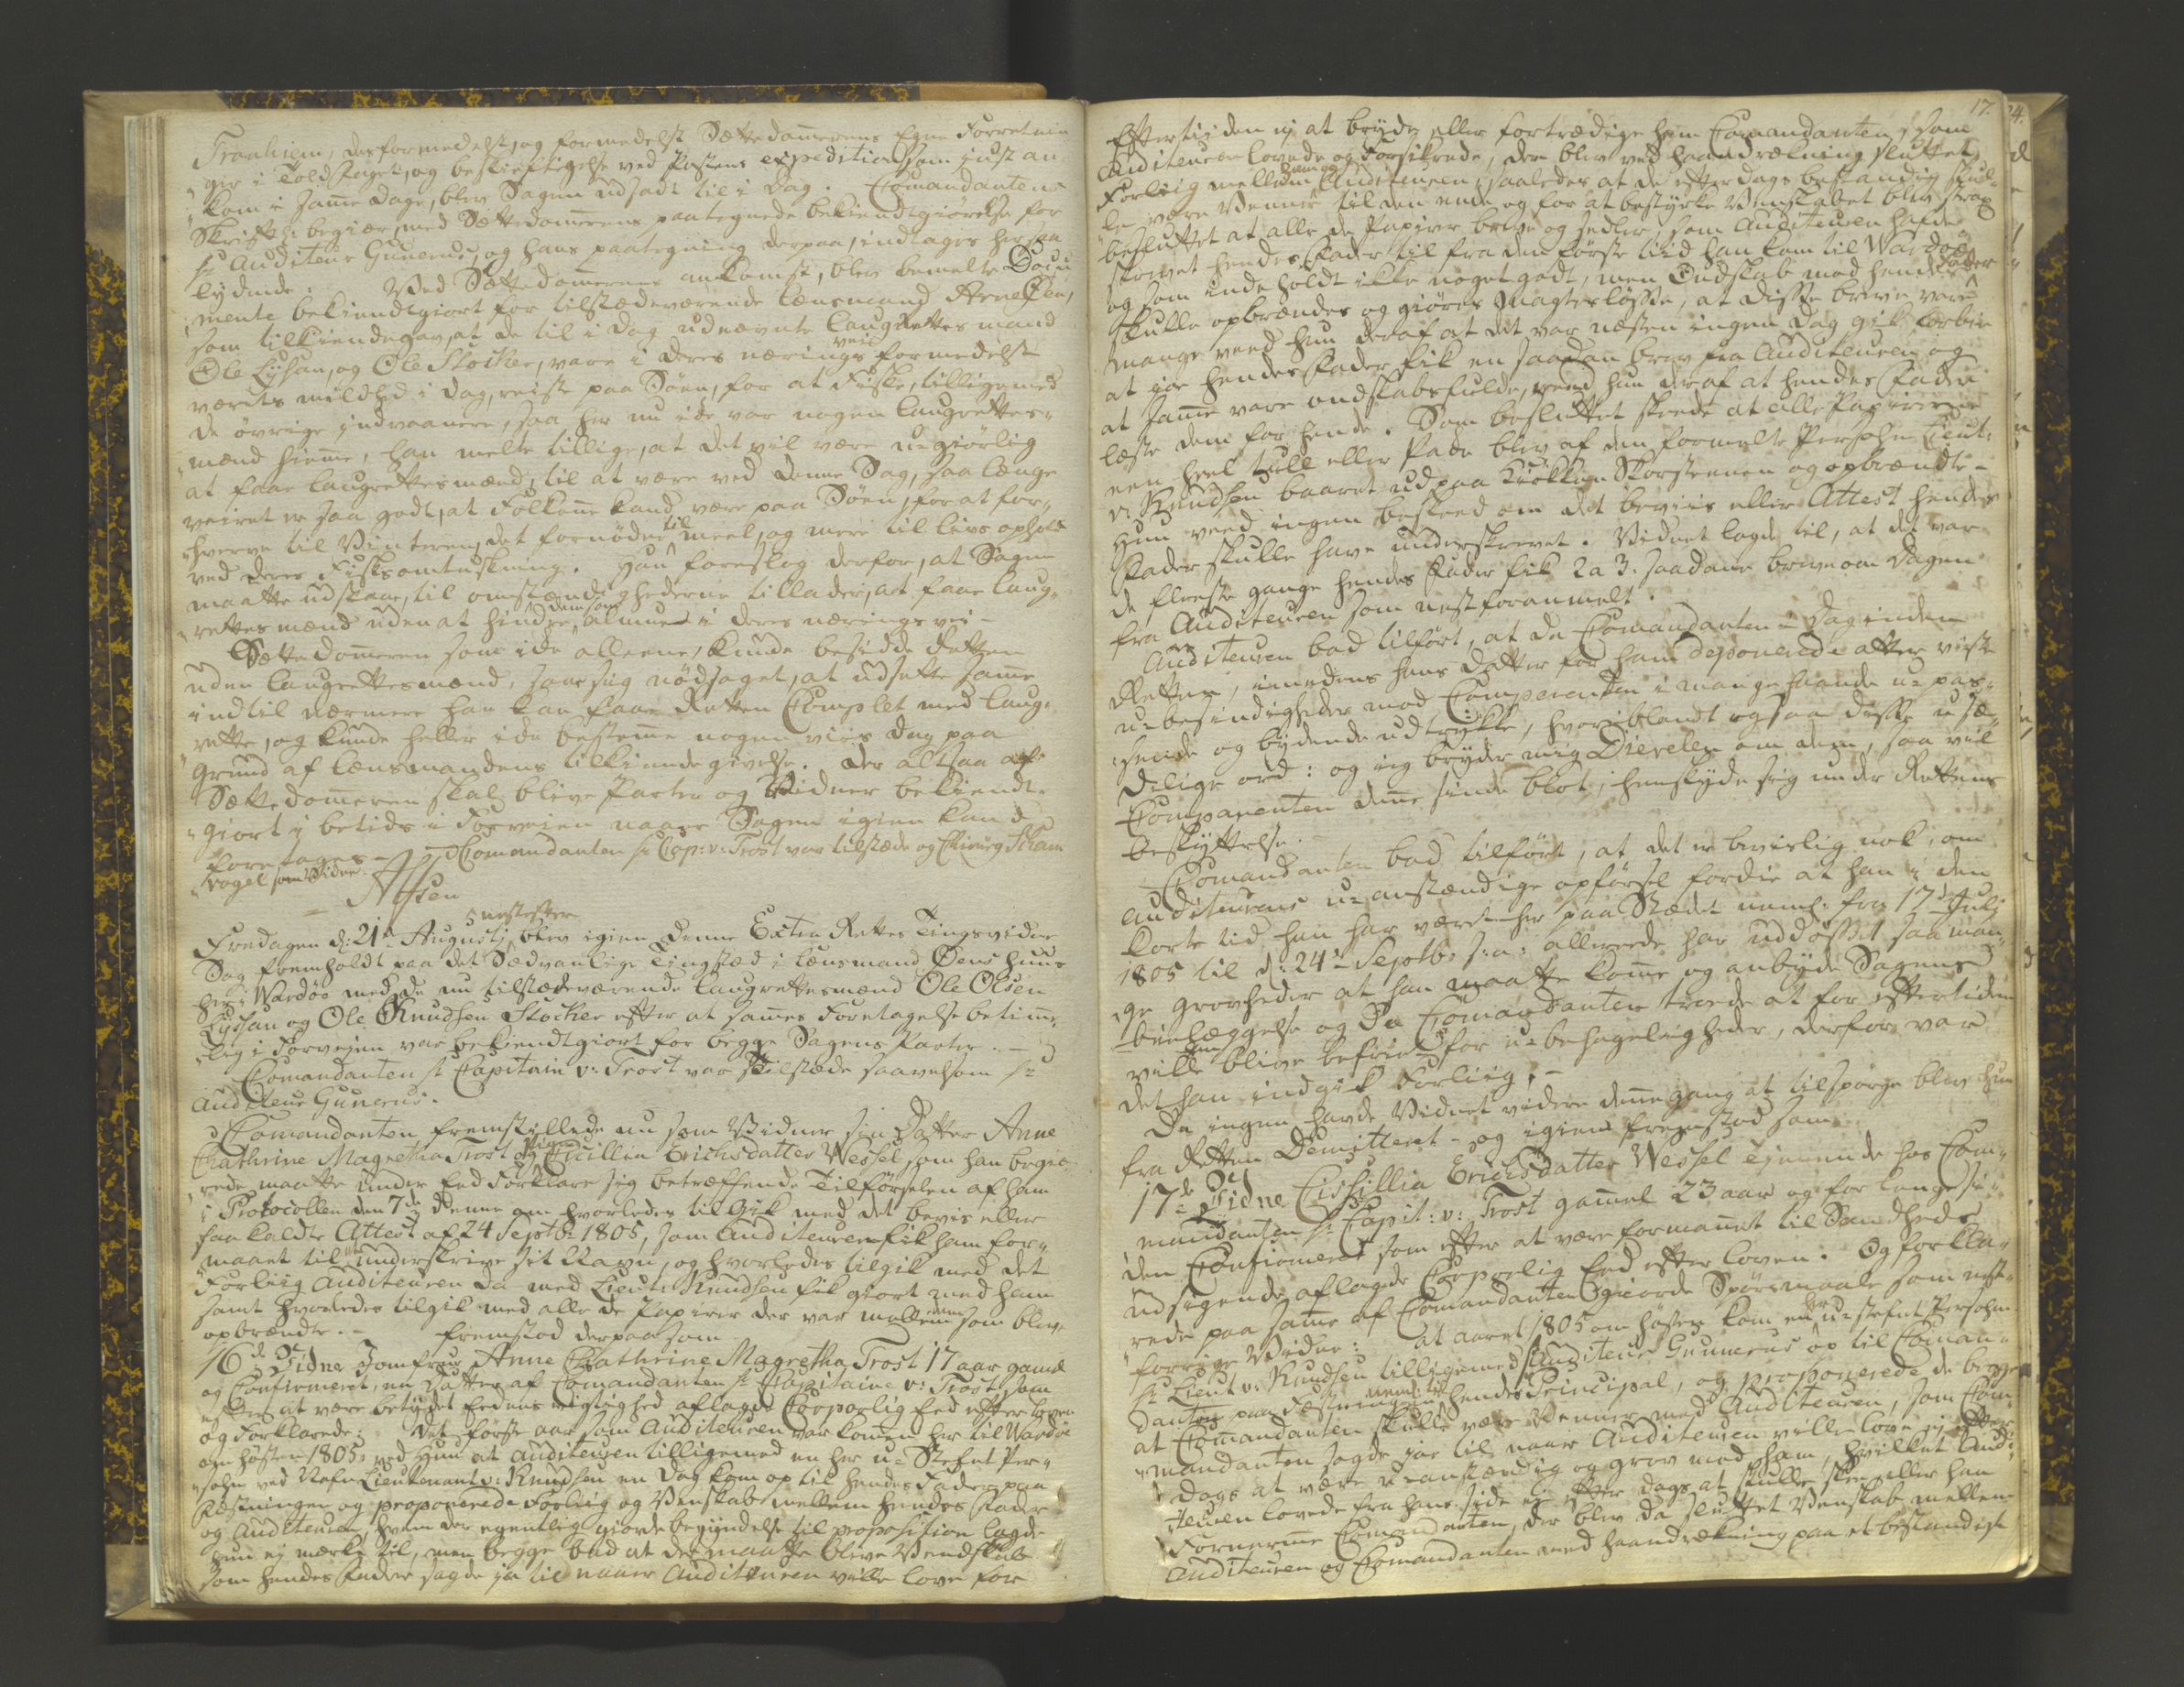 Tronhiem, derformedelst, og formedelst Sættedommerens Egne Forretnin-
ger i Told faget, og beskieftigelse ved Postens expedition som just an-
kom i samme Dage, blev Sagen udsadt til i Dag. Comandantens
Skriftl: begiær, med Sættedommerens paategnede bekiendtgiørelse for
Hr Auditeur Gunerus, og hans paategning derpaa, indtages her saa
lydende: Ved Sættedommerens ankomst, blev bemelte Docu-
mente bekiendtgiort for tilstædeværende Lænsmand Arne Oen,
som tilkiendegav, at de til i Dag udnævnte Laugrettes mænd
Ole Lyhsan, og Ole Stocker, vare i deres nærings vei formedelst
værets mildhed i Dag, reiste paa Søen, for at Fiske, tilligemed
de øvrige indvaanere, saa her nu icke var nogen Laugrettes-
mænd hiemme, han melte tillige, at det vil være u-giørlig
at faae Laugrettesmænd, til at være ved denne Sag, saalænge
veiret er saa godt, at Folkene kand være paa Søen, for at for-
hverve til Vinteren, det fornødne til meel, og mere til livs ophold
ved deres Fiskeomtuskning. Han foreslog derfor, at Sagen
maatte udstaae, til omstændighederne tillader, at faae Laug-
rettesmænd uden at hindre dem som almue i deres nærings vei -
Sættedommeren som icke alleene, kunde besidde Retten
uden Laugrettesmænd, saae sig nødsaget, at udsette samme
indtil nærmere han kan faae Retten Complet med Laug-
rette, og kunde heller icke bestemme nogen vis Dag paa
Grund af Lænsmandens tilkiendegivelse. Der altsaa af
Sættedommeren skal blive Parter og Vidner bekiendt-
giort i betids i Forveien naar Sagen igien kand
foretages - Comandanten Hr Cap: v: Trost var tilstæde og Chirurg Scham
vogel som Vidne.
Fredagen d: 21de Augusti nestefter blev igien denne Extra Rettes Tingsvidne
Sag fremholdt paa det Sædvanlige Tingsted i Lænsmand Oens huus
her i Wardøe med de nu tilstædeværende Laugrettesmænd Ole Olsen
Lyhsan og Ole Knudsen Stocker efter at sammes Foretagelse betim-
lig i Forveien var bekiendtgiort for begge Sagens Parter. -
Comandanten Hr Capitain v: Trost var tilstæde saavelsom Hr
Auditeur Gunerus.
Comandanten fremstillede nu som Vidner sin Datter Anne
Chathrine Magretha Trost og Pigen Cicillia Erichsdatter Wessel, som han begie-
rede maatte under Eed Forklare sig betræffende Tilførselen af ham
i Protocollen den 7de Denne om hvorledes tilgik med det bevis eller
saa kaldte Attest af 24 Septbr 1805, som Auditeuren fik ham for-
maaet til at underskrive sit Navn, og hvorledes tilgik med det
Forliig Auditeuren da med Lieut: Knudsen fik giort med ham
samt hvorledes tilgik med alle de Papirer der var mellem dem som blev
opbrændte. - Fremstod derpaa som
16de Vidne Jomfrue Anne Chathrine Magretha Trost 17 aar gamel
og Confirmeret, en Datter af Comandanten Hr Capitaine v: Trost, som
efter at være betydet Eedens vigtighed aflagde Corporlig Eed efter Loven
og Forklarede: Det første aar som Auditeuren var kommen her til Wardøe
om høsten 1805, ved Hun at Auditeuren tilligemed en her u-Stefnt Per-
sohn ved Nafn Lieutenant v: Knudsen en Dag kom op til hendes Fader paa
Festningen og proponerede Forliig og Venskab mellem hendes Fader
og Auditeuren, hvem der egentlig giorde begyndelse til proposition lagde
hun ej mærke til, men begge bad at der maatte blive Vendskab
som hendes Fader sagde ja til naar Auditeuren ville love for
17.
Eftertiden ej at bryde eller fortrædige ham Comandanten, som
Auditeuren lovede og Forsikrede, der blev ved haandrækning sluttet
Forliig mellem ham og Auditeuren saaledes at de efterdags bestandig skul-
le være Venner til den ende og for at bestyrke Venskabet blev strax
besluttet at alle de Papirer breve og sedler, som Auditeuren hafde
skrevet hendes Fader til fra den første tid han kom til Wardøe
og som inde holdt ikke noget godt, men Ondskab mod hendes Fader
skulle opbrændes og giøres Magtesløsse, at disse breve vare
mange veed hun deraf at det var næsten ingen Dag gik forbie
at jo hendes Fader fik en saadan brev fra Auditeuren og
at samme vare ondskabsfulde, veed hun deraf at hendes Fader
læste dem for hende. Som besluttet skeede at alle Papirerne
een heel tull eller Pakke blev af den foermelte Persohn Lieut:
v: Knudsen baaret ud paa Kiøkken Skorsteenen og opbrændte -
Hun veed ingen beskeed om det beviis eller Attest hendes
Fader skulle have underskrevet. Vidnet lagde til, at det var
de fleeste gange hendes Fader fik 2 a 3. saadane breve om Dagen
fra Auditeuren som nestforanmelt.
Auditeuren bad tilført, at da Comandanten i Dag inden
Retten, imedens hans Datter for ham deponerede atter viiste
u-besindigheder mod Comparenten i mangehaande u-pas-
sende og bydende udtrykke, hvoriblandt ogsaa disse u-sæ-
delige ord: og jeg bryder mig Dievelen om dem, saa vil
Comparenten denne sinde blot, henskyde sig under Rettens
beskyttelse. -
Comandanten bad tilført, at det er beviislig nok, om
Auditeurens u-anstændige opførsel fordie at han i den
korte tid han har været her paa Stedet neml: fra 17de Juli
1805 til d: 24de Septbr s: a: allereede har uddøsset saa man-
ge grovheder at han maatte komme og anbyde Sagens
bielæggelse og Da Comandanten troede at for eftertiden
ville han blive befriet for u-behageligheder, derfor var
det han indgik Forliig. -
Da ingen havde Vidnet videre denne gang at tilspørge blev hun
fra Retten Demitteret - og igien fremstod som
17de Vidne Cissillia Erichsdatter Wessel tienende hos Com-
mandanten Hr Capit: v: Trost gammel 23 aar og for længe si-
den Confirmeret som efter at være formanet til Sandheds
udsigende aflagde Corporlig Eed efter Loven. Og forkla-
rede paa samme af Comandanten giorde Spørsmaale som nest-
forrige Vidne: at aaret 1805 om høsten kom en her u-stefnt Persohn
Hr Lieut v: Knudsen tilligemed Auditeur Gunnerus op til Coman-
danten paa Festningen neml: til hendes Principal, og proponerede de begge
at Comandanten skulle være Venner med Auditeuren, som Com-
mandanten sagde jae til naar Auditeuren ville love ej efter
Dags at være u-anstændig og grov mod ham, hvilket Audi-
teuren lovede fra hans side ej efter dags at skulle skee eller han
Fornerme Comandanten, der blev da sluttet Venskab mellem
Auditeuren og Comandanten med haandrækning paa et bestandigt